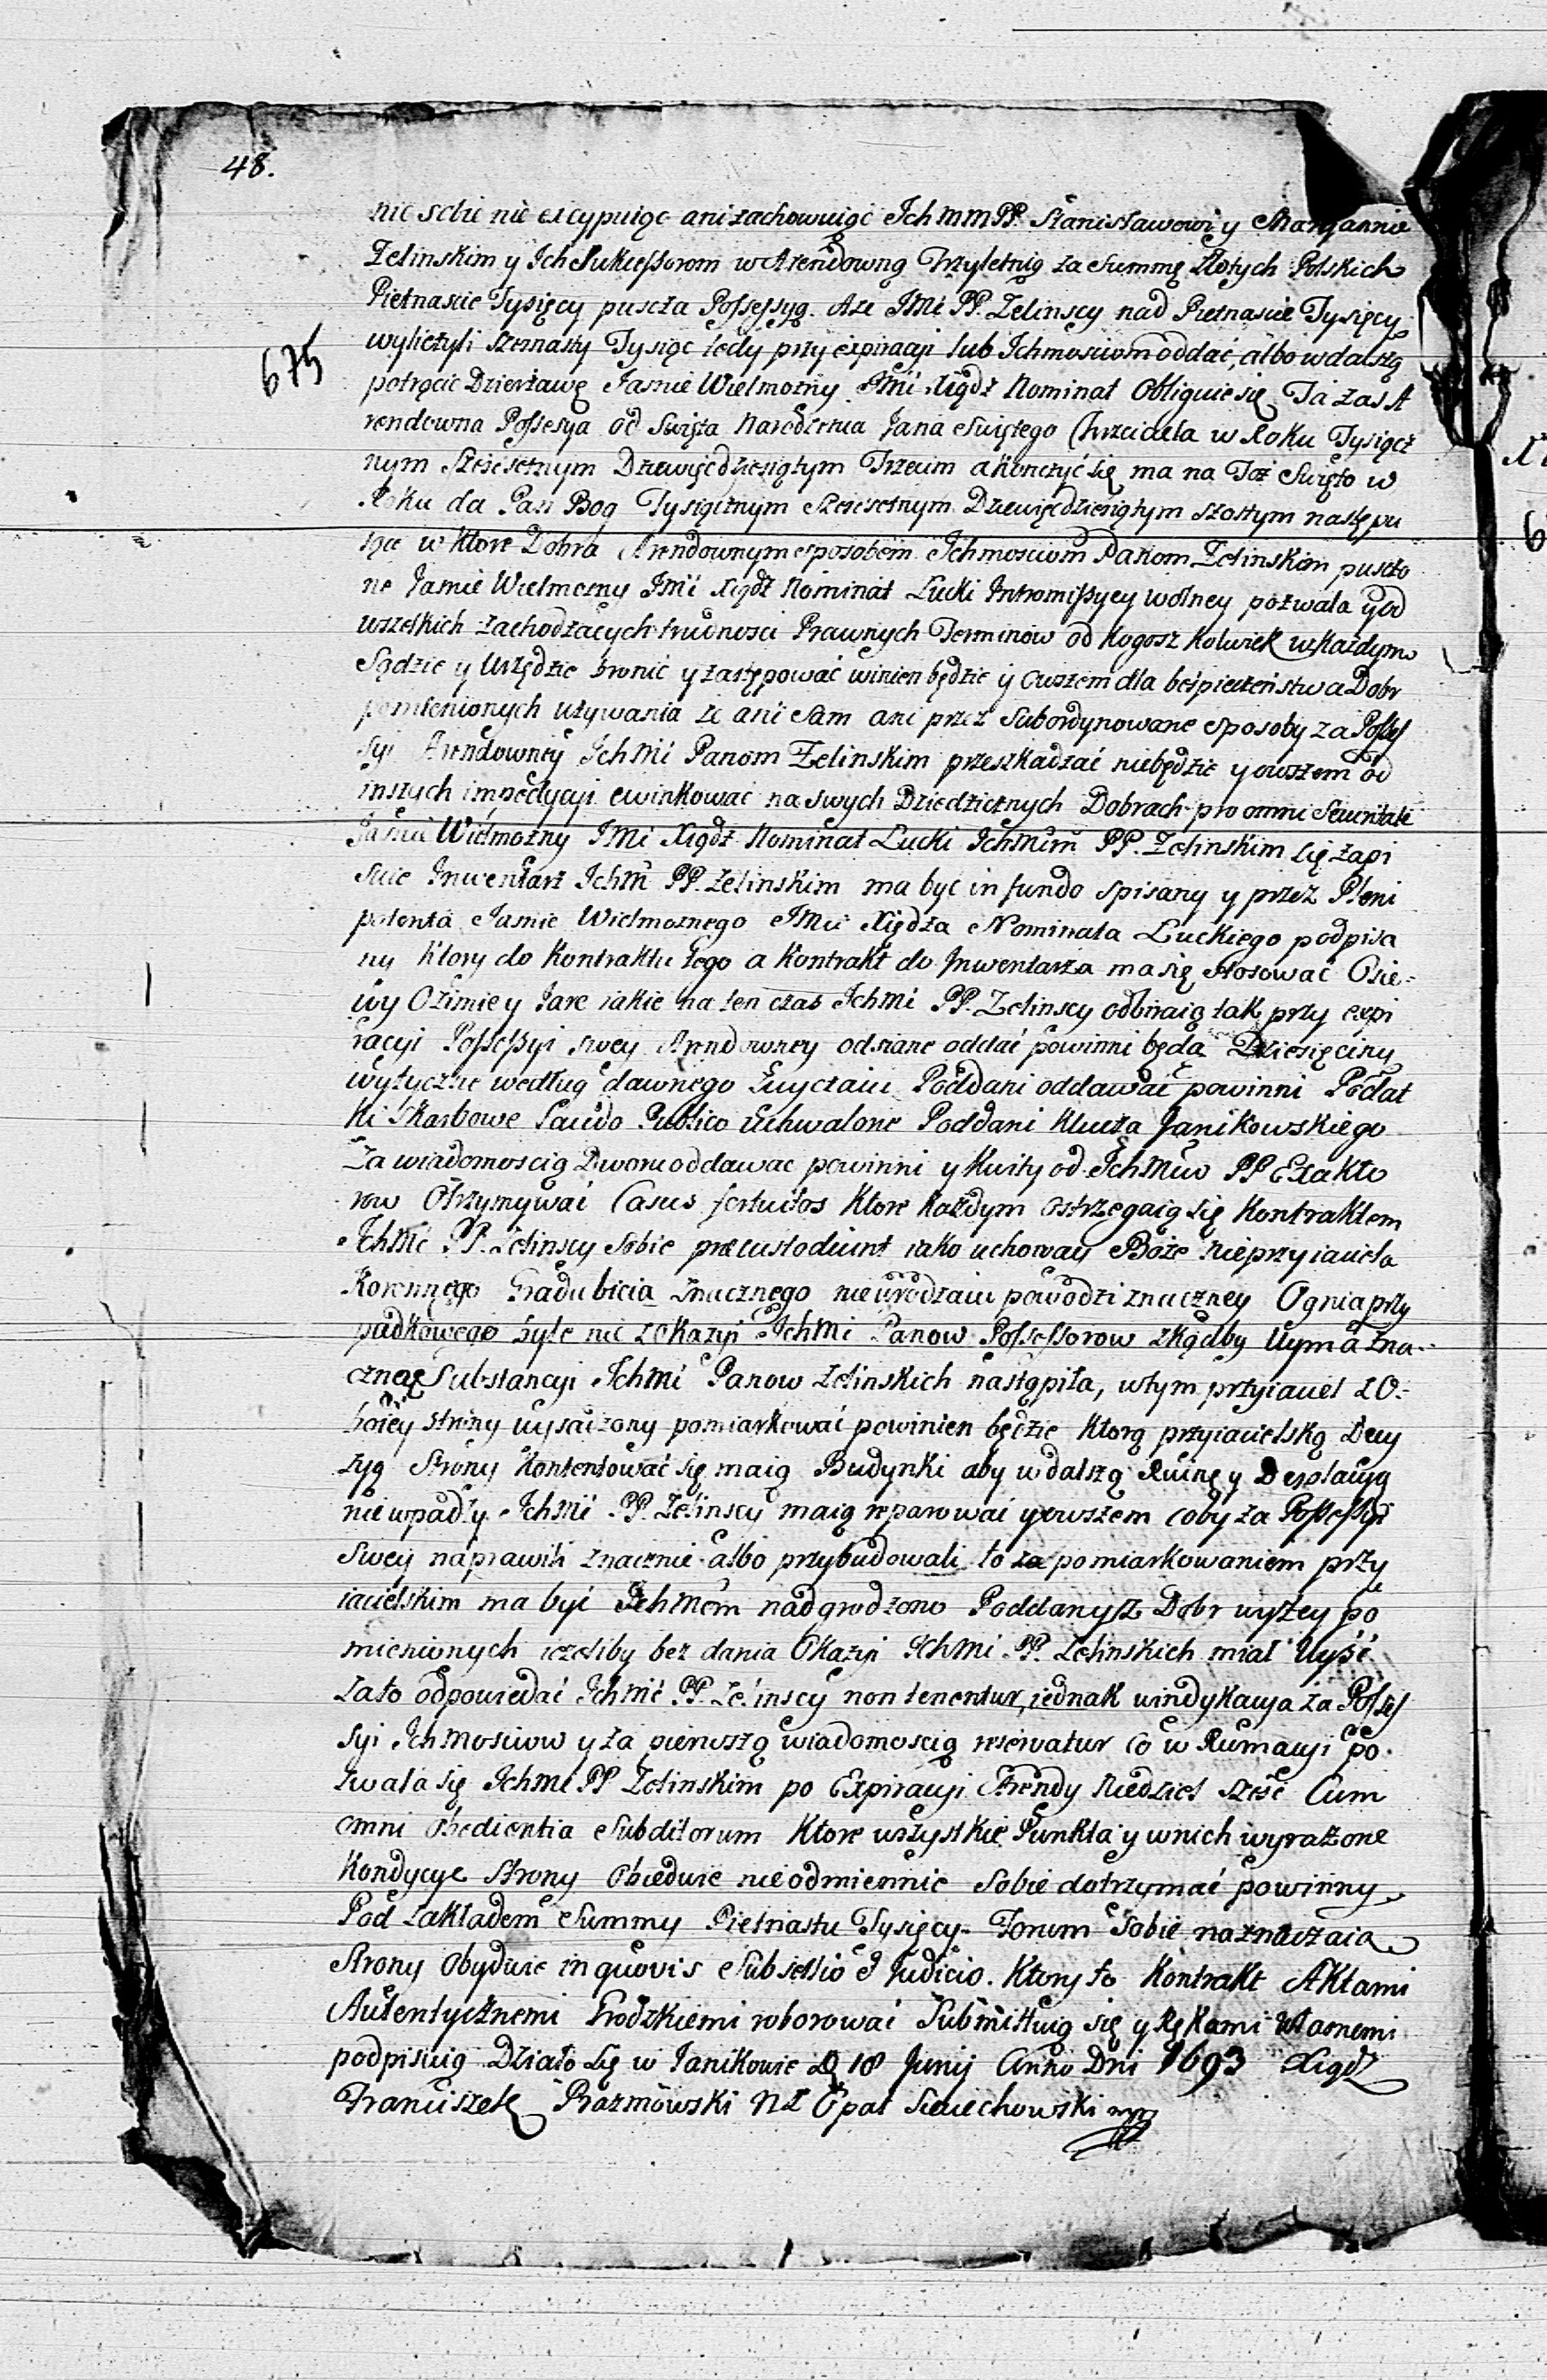 48.
nic sobie nie excypuiąc ani zachowuiąc Ich mm PP. Stanisławowi y Maryannie
Zelinskim y Ich Sukcessorom w Arendowną Trzyletnią za Summę Złotych Polskich
Pietnascie Tysięcy puscza Possessyą. Aze Imć PP. Zelinscy nad Pietnascie Tysięcy
675
wyliczyli szesnasty Tysiąc tedy przy expiracyi lub Ichmosciom oddać, albo w dalszą
potrącic Dzierzawę Jasnie Wielmozny Jmć Xiądz Nominat Obliguie się Ta zas A
rendowna Possesya od Swięta Narodzenia Jana Swiętego Chrzciciela w Roku Tysiącz
nym Szescsetnym Dziewięcdziesiątym Trzecim a konczyć się ma na Toż Swięto w
Roku da Pan Bog Tysiącznym Szescsetnym Dziewięcdziesiątym szostym nastepu
iące w ktore Dobra Arendownym sposobem Ichmosciom Panom Zelinskim puszczo
ne Jasnie Wielmozny Jmć Xiądz Nominat Łucki Intromissyey wolney pozwala y od
wszelkich zachodzących trudnosci Prawnych Terminow od kogosz kolwiek w kazdym
Sądzie y Urzędzie bronic y zastępować winien będzie y owszem dla bespieczeństwa Dobr
pomienionych uzywania ze ani Sam ani przez Subordynowane sposoby za Posses
syi Arendowney Ichmć Panom Zelinskim przeszkadzać niebędzie y owszem od
inszych impedycyi ewinkować na swych Dziedzicznych Dobrach pro omni Securitate
Jasnie Wielmozny Jmć Xiądz Nominat Łucki Ichmćm PP. Zelinskim się zapi
suie Inwentarz Ichm PP. Zelinskim ma być in fundo spisany y przez Pleni
potenta Jasnie Wielmoznego Jmć Xiędza Nominata Łuckiego podpisa
ny ktory do Kontraktu tego a Kontrakt do Inwentarza ma się stosować Osie-
wy Ozimie y Jare iakie na ten czas Ichmć PP. Zelinscy odbiraią tak przy expi
racyi Possessyi swey Arendowney odsiane oddać powinni będa Dziesięciny
wytyczne według dawnego zwyczaiu Poddani oddawać powinni Podat
ki Skarbowe Laudo Publico uchwalone Poddani Klucza Janikowskiego
Za wiadomoscią Dworu oddawac powinni y kwity od Ichmćw PP Exakto
row Otrzymywać Casus fortuitos Ktore kazdym ostrzegaią się Kontraktem
Ichmć PP. Zelinscy sobie præcustodiunt iako uchoway Boze nieprzyiaciela
Koronnego Gradubicia znacznego nieurodzaiu powodzi znaczney Ognia przy
padkowego byle nie z okazyi Ichmć Panow Possessorow zkądby Uyma zna-
cznaę Substancyi Ichmć Panow Zelinskich nastąpiła, wtym przyiaciel z O-
boiey strony wysadzony pomiarkować powinien będzie ktorą przyiacielską Decy
zyą Strony Kontentować się maią Budynki aby w dalszą Ruinę y Dezolacyą
nie wpadły Ichmć PP. Zelinscy maią reparować y owszem coby za Possessyi
swey naprawili znacznie albo przybudowali to za pomiarkowaniem przy
iacielskim ma być Ichmćm nadgrodzono Poddany z Dobr wyzey po
mienionych iezeliby bez dania Okazyi Ichmć PP. Zelinskich miał Uyść
zato odpowiedać Ichmć PP. Zelinscy non tenentur, iednak windykacya za Posses
syi Ichmosciow y za pierwszą wiadomoscią reservatur Co w Rumacyi po-
zwala się Ichmć PP Zelinskim po Expiracyi Arendy Niedziel szesć Cum
omni Obedientia Subditorum Ktore wszystkie Punkta y w nich wyrazone
Kondycye Strony Obiedwie nieodmiennie Sobie dotrzymać powinny
Pod zakładem Summy Pietnastu Tysięcy. Forum sobie naznaczaia
Strony Obydwie in quovis Subsellio et Judicio. Ktory to Kontrakt Aktami
Autentycznemi Grodzkiemi roborować Submittuią się y Rękami własnemi
podpisuią Działo się w Janikowie D 18 Junij Anno Dni 1693 Xiądz
Franciszek Prazmowski NŁ Opat Sieciechowski mp